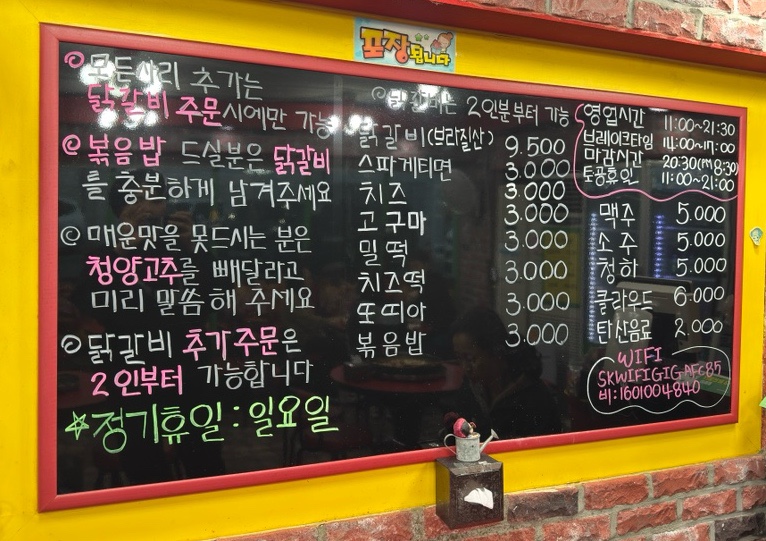 포장됩니다
◎ 모든사리 추가는
닭갈비 주문시에만 가능
◎ 볶음밥 드실분은 닭갈비
를 충분하게 남겨주세요
◎ 매운맛을 못드시는 분은
청양고추를 빼달라고
미리 말씀해 주세요
◎ 닭갈비 추가주문은
2인부터 가능합니다
☆정기휴일 : 일요일
◎ 닭갈비는 2인분부터 가능
닭갈비(브라질산) 9.500
스파게티면 3.000
치즈 3.000
고구마 3.000
밀떡 3.000
치즈떡 3.000
또띠아 3.000
볶음밥 3.000
영업시간 11:00~21:30
브레이크타임 14:00~17:00
마감시간 20:30(PM8:30)
토공휴인 11:00~21:00
맥주 5.000
소주 5.000
청하 5.000
클라우드 6.000
탄산음료 2.000
WIFI
SKWIFIGIGAFC85
비:1601004840